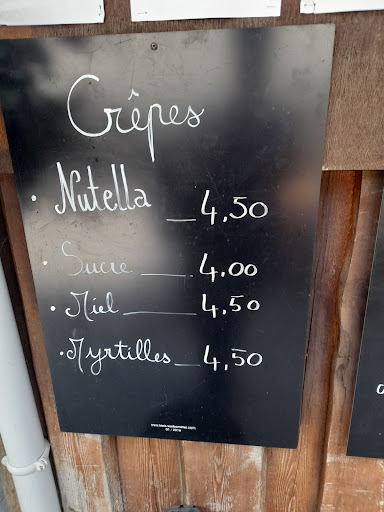 Crêpes
• Nutella __ 4,50
• Sucre ____ 4.00
• Miel ______ 4,50
• Myrtilles __ 4,50